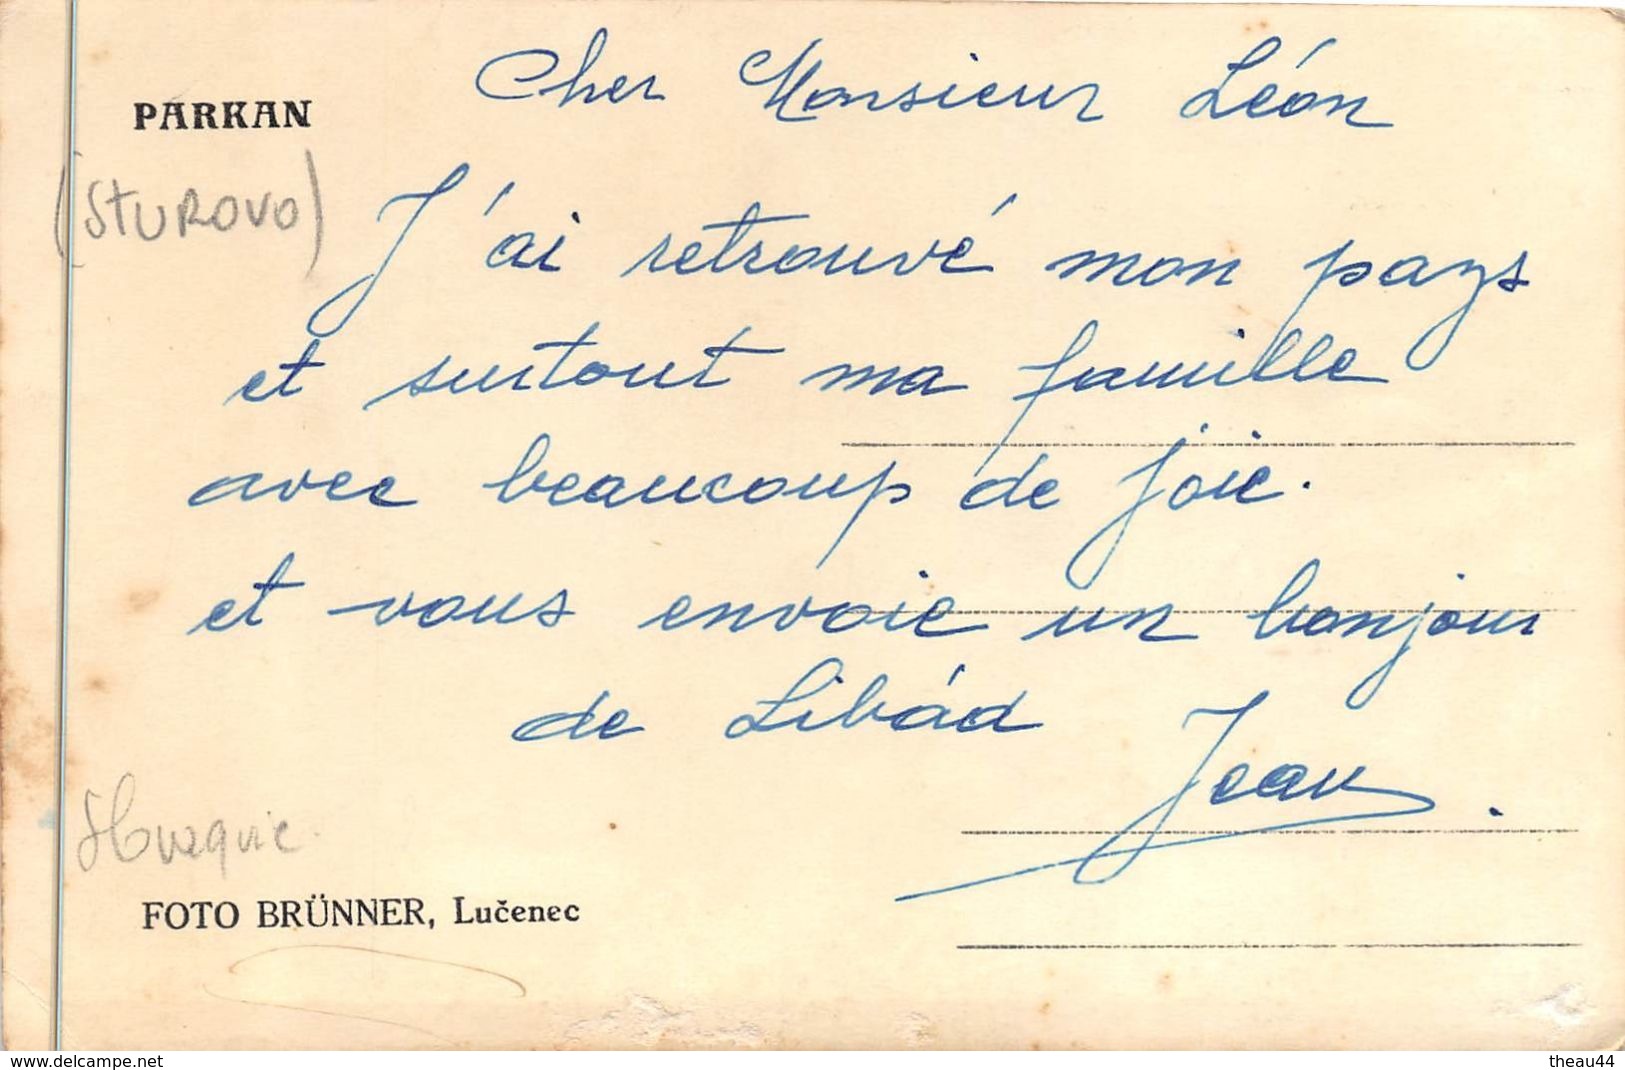 PARKAN
(STUROVO)
Cher Monsieur Léon
J'ai retrouvé mon pays
et surtout ma famille
avec beaucoup de joie.
et vous envoie un bonjour
de Libád
Jean.
FOTO BRÜNNER, Lučenec
www.delcampe.net
theau44